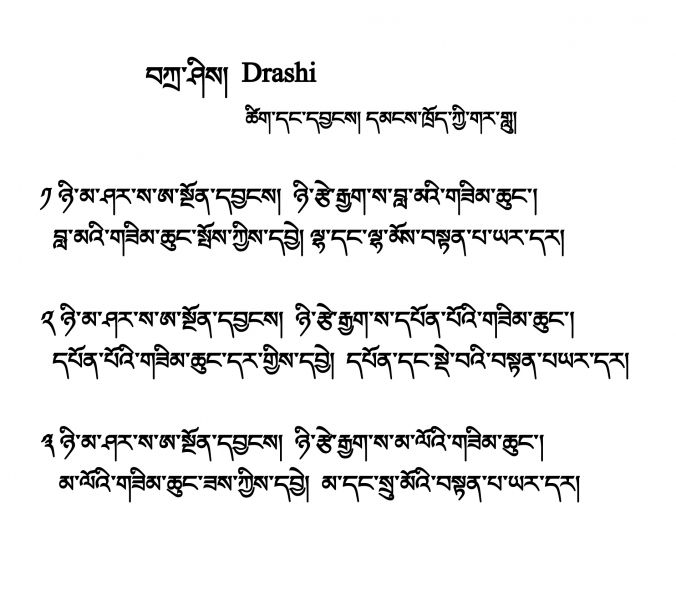 བཀྲ་ཤིས། Drashi
ཚིག་དང་དབྱངས། དམངས་ཁྲོད་ཀྱི་གར་གླུ།
༡ ཉི་མ་ཤར་ས་ཨ་སྔོན་དབྱངས། ཉི་རྩེ་རྒྱག་ས་བླ་མའི་གཟིམ་ཆུང་།
བླ་མའི་གཟིམ་ཆུང་སྤོས་ཀྱིས་དབྱེ། ལྷ་དང་ལྷ་མོས་བསྟན་པ་ཡར་དར།
༢ ཉི་མ་ཤར་ས་ཨ་སྔོན་དབྱངས། ཉི་རྩེ་རྒྱག་ས་དཔོན་པོའི་གཟིམ་ཆུང་།
དཔོན་པོའི་གཟིམ་ཆུང་དར་གྱིས་དབྱེ། དཔོན་དང་སྡེ་བའི་བསྟན་པཡར་དར།
༣ ཉི་མ་ཤར་ས་ཨ་སྔོན་དབྱངས། ཉི་རྩེ་རྒྱག་ས་མ་ལོའི་གཟིམ་ཆུང་།
མ་ལོའི་གཟིམ་ཆུང་ཟས་ཀྱིས་དབྱེ། མ་དང་སྲུ་མོའི་བསྟན་པ་ཡར་དར།